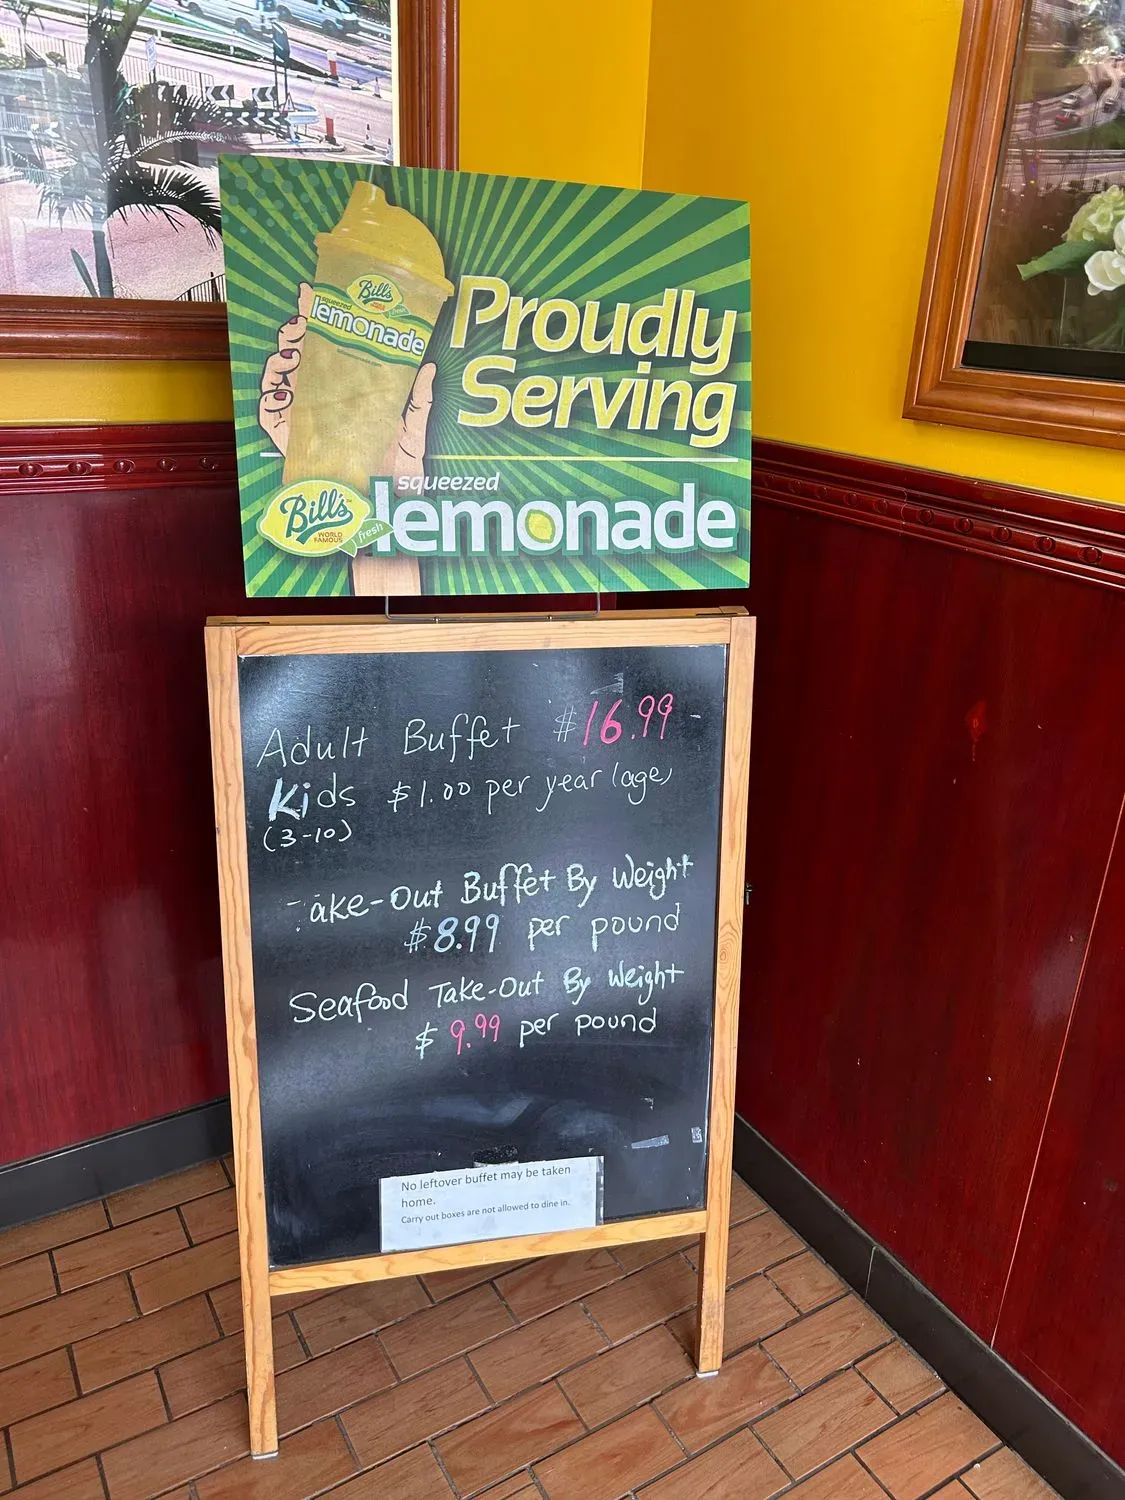 Bill's
squeezed
lemonade
Proudly
Serving
Bill's
WORLD
FAMOUS
fresh
squeezed
lemonade
Adult Buffet $16.99
Kids $1.00 per year (age)
(3-10)
Take-Out Buffet By Weight
$8.99 per pound
Seafood Take-Out By Weight
$9.99 per pound
No leftover buffet may be taken
home.
Carry out boxes are not allowed to dine in.